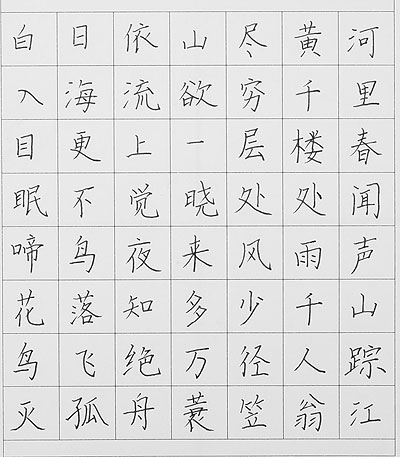 白日依山尽黄河
入海流欲穷千里
目更上一层楼春
眠不觉晓处处闻
啼鸟夜来风雨声
花落知多少千山
鸟飞绝万径人踪
灭孤舟蓑笠翁江